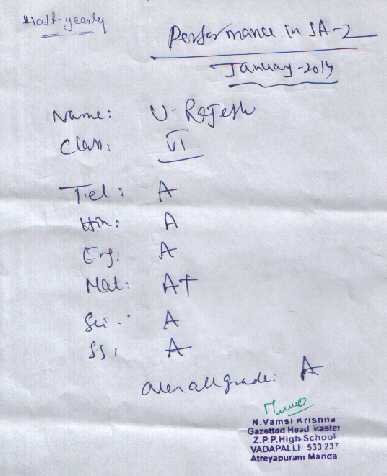 Half-yearly
Performance in SA-2
January-2014
Name: U. Rajesh
Class: VI
Tel: A
Hin: A
Eng: A
Mat: A+
Sci: A
SS: A
Over all grade: A
N.Vamsi Krishna
Gazetted Head Master
Z.P.P.High School
VADAPALLI 533 237
Atreyapuram Manda